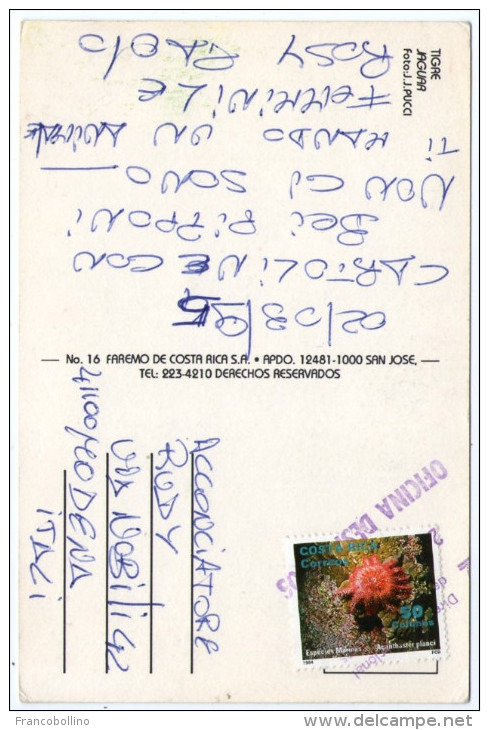 TIGRE
JAGUAR
Foto:J.J.PUCCI
02/03/95
CARTOLINE CON
BEI PIPPONI
NON CI SONO
Ti MANDO UN ANIMALE
FEMMINILE
ROSY PAOLO
No. 16 FAREMO DE COSTA RICA S.A. • APDO. 12481-1000 SAN JOSE,
TEL: 223-4210 DERECHOS RESERVADOS
ACCONCIATORE
RUDY
VIA NOBILI
41100 MODENA
iTALi
COSTA RICA
Correos
50
Colones
Especies Marinas
Acanthaster planci
1994
OFICINA
Francobollino
www.delcampe.net